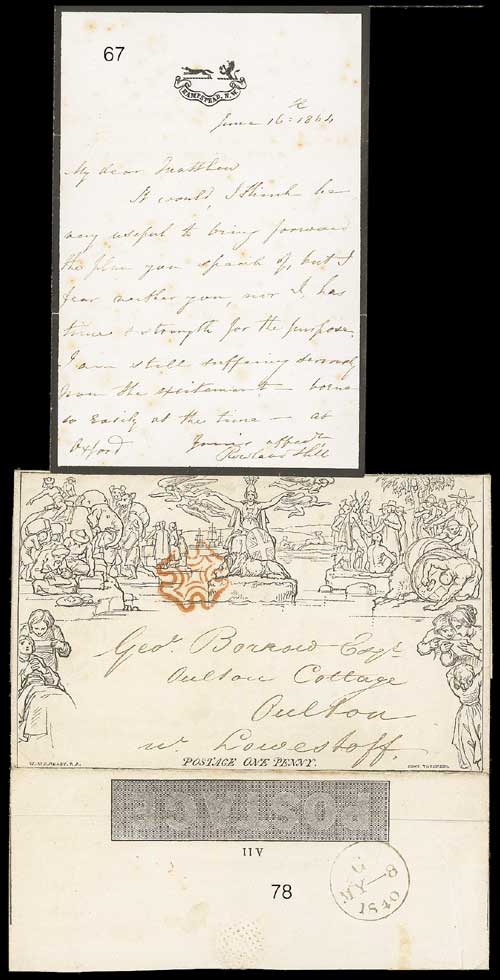 67
HAMPSTEAD, N.W.
June 16th 1864
My dear Matthew
It would, I think be
very useful to bring forward
the plan you speak of, but I
fear neither you, nor I, has
time & strength for the purpose.
I am still suffering seriously
from the excitement — borne
so easily at the time — at
Oxford Yours affecty
Rowland Hill
Geoe. Borrow Esqre
Oulton Cottage
Oulton
nr. Lowestoff.
POSTAGE ONE PENNY.
POSTAGE
VII
78
G
MY 8
1840